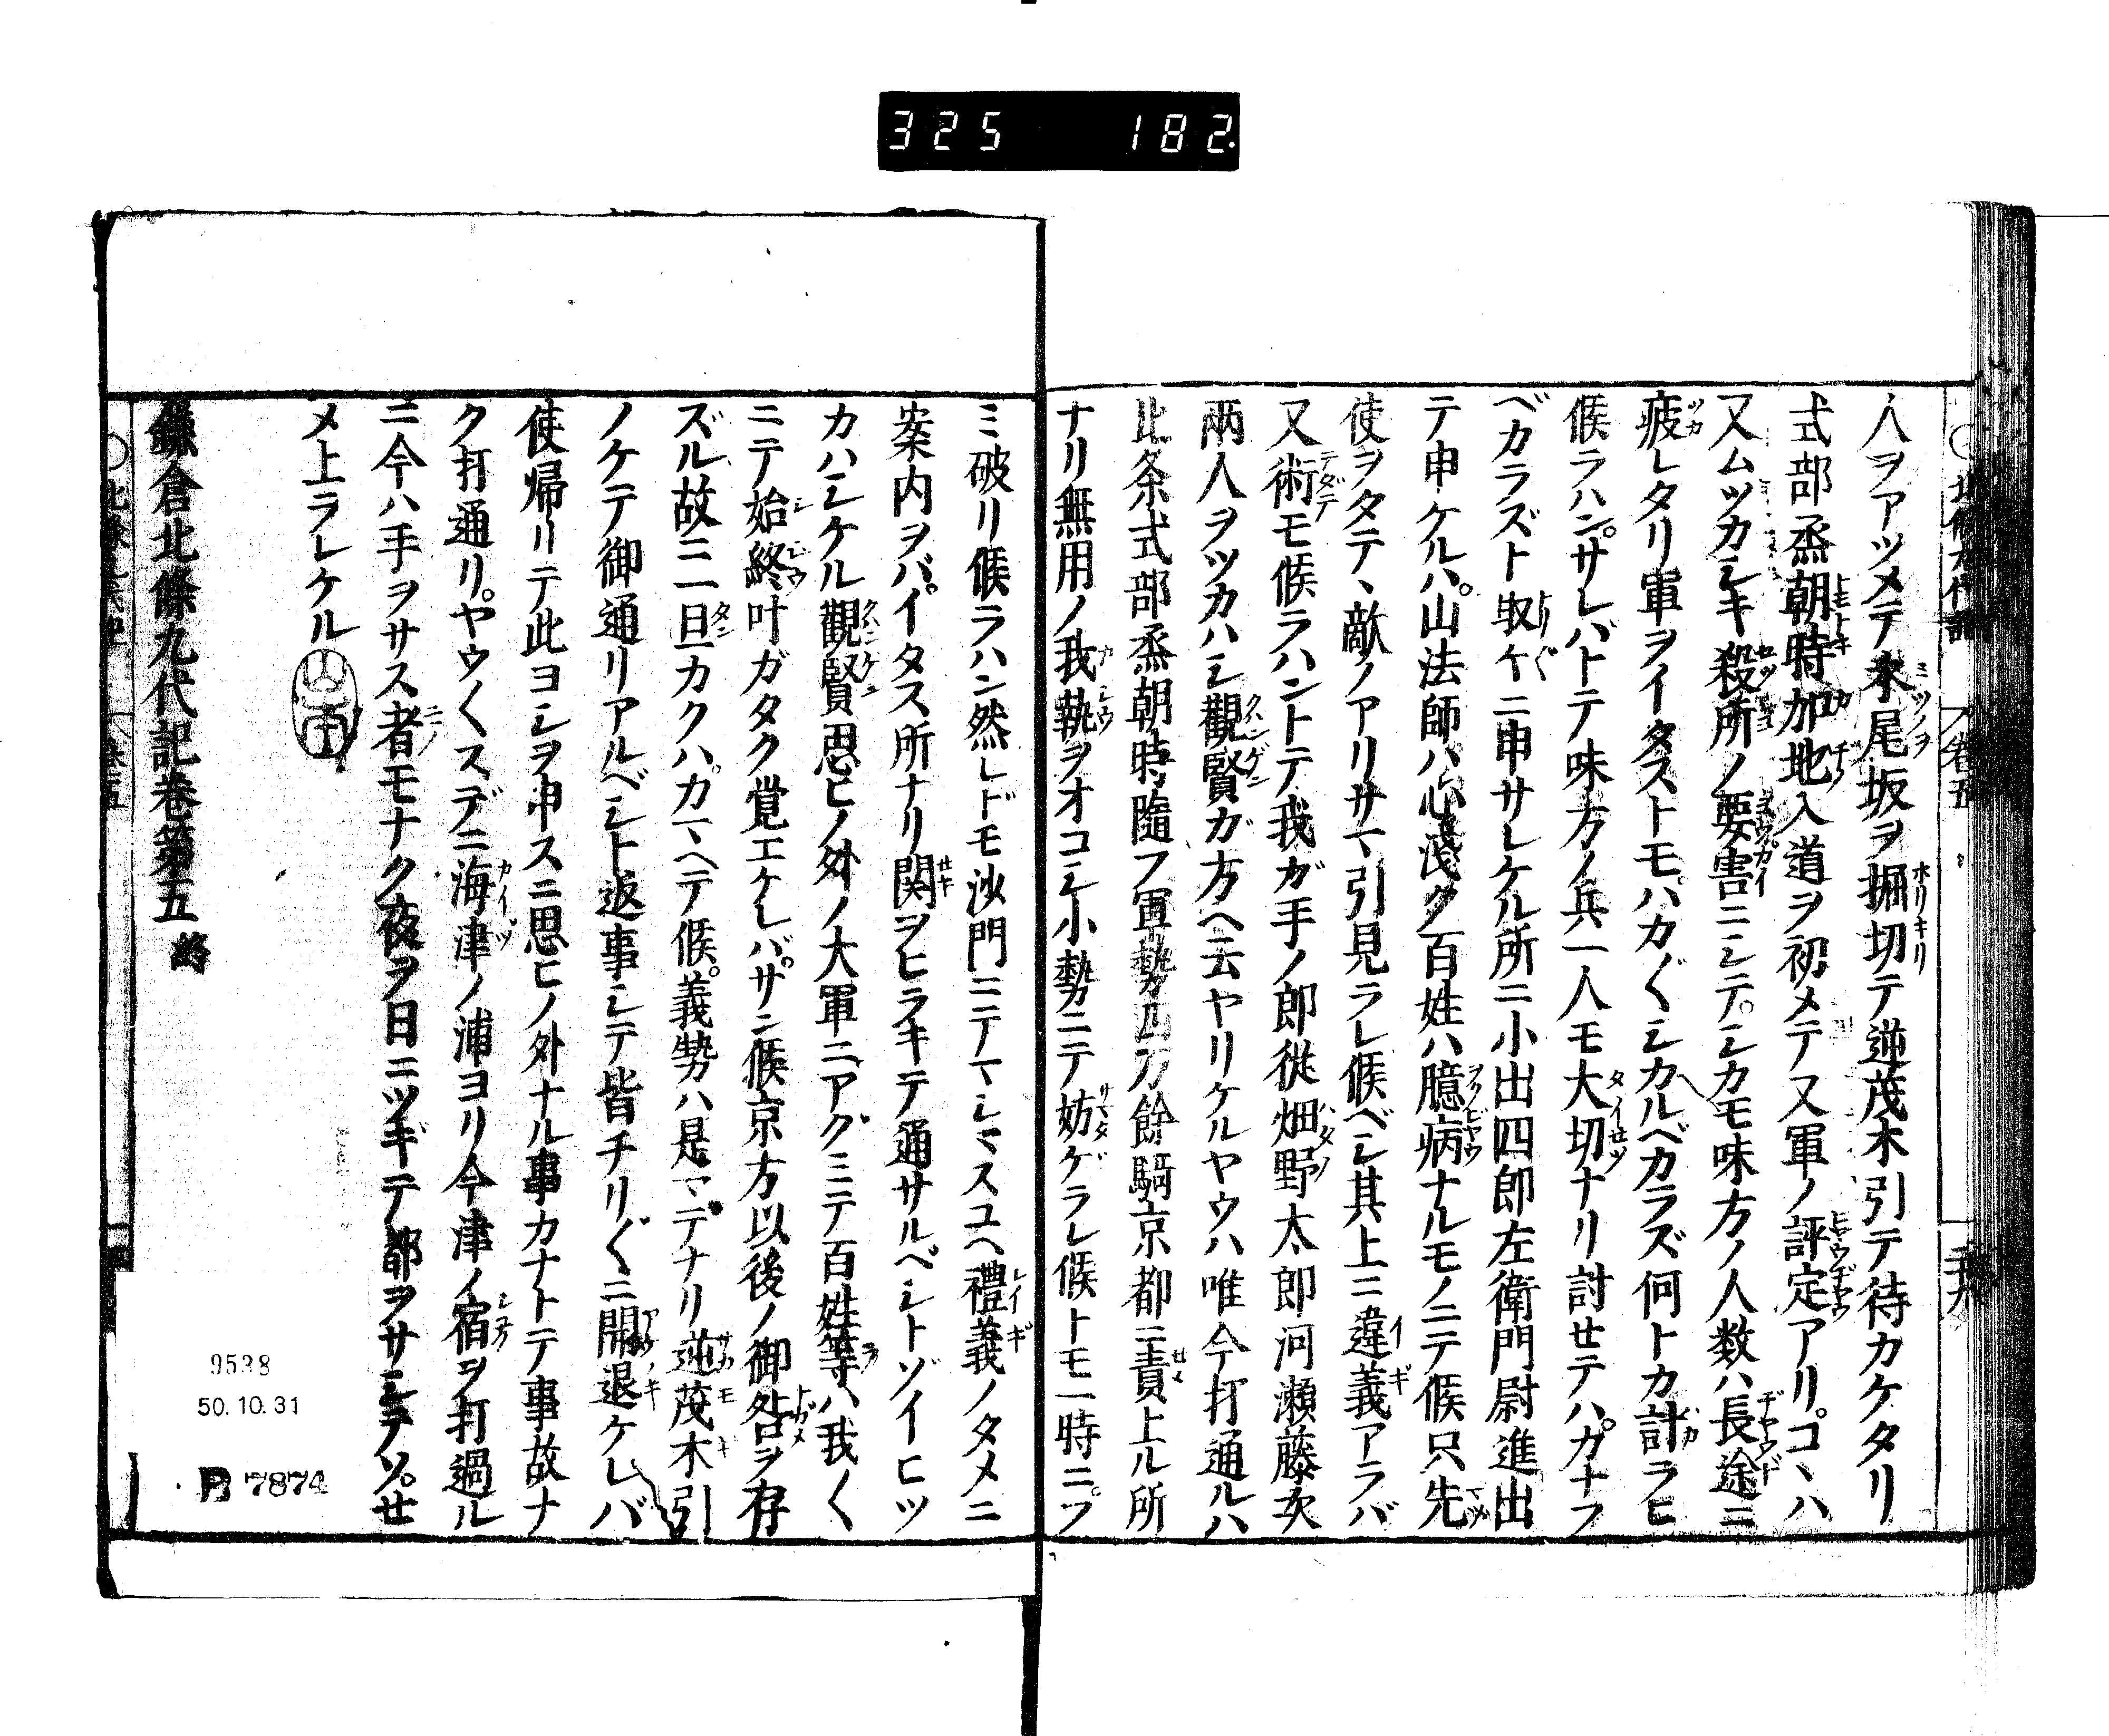 325 182
人ヲアツメテ木尾坂ヲ掘切テ逆茂木引テ待カケタリ
式部烝朝時加地入道ヲ初メテ又軍ノ評定アリ。コヽハ
又ムツカシキ殺所ノ要害ニシテ。シカモ味方ノ人数ハ長途ニ
疲レタリ軍ヲイタストモ。ハカ〴〵シカルベカラズ何トカ計ラヒ
候ラハン。サレバトテ味方ノ兵一人モ大切ナリ討セテハ。カナフ
ベカラズト取〴〵ニ申サレケル所ニ小出四郎左衛門尉進出
テ申ケルハ。山法師ハ心浅ク百姓ハ臆病ナルモノニテ候只先
使ヲタテヽ敵ノアリサマ引見ラレ候ベシ其上ニ違義アラバ
又術モ候ラハントテ我ガ手ノ郎従畑野太郎河瀬藤次
兩人ヲツカハシ觀賢ガ方ヘ云ヤリケルヤウハ唯今打通ルハ
此条式部烝朝時隨フ軍勢四万餘騎京都ニ責上ル所
ナリ無用ノ我執ヲオコシ小勢ニテ妨ゲラレ候トモ一時ニ。フ
ミ破リ候ラハン然レドモ沙門ニテマシマスユヘ禮義ノタメニ
案内ヲバ。イタス所ナリ関ヲヒラキテ通サルベシトゾイヒツ
カハシケル觀賢思ヒノ外ノ大軍ニ。アグミテ百姓等ハ我〱
ニテ始終叶ガタク覚エケレバ。サン候京方以後ノ御咎ヲ存
ズル故ニ一旦カクハ。カマヘテ候。義勢ハ是マデナリ逆茂木引
ノケテ御通リアルベシト返事シテ皆チリ〴〵ニ開退ケレバ
使帰リテ此ヨシヲ申スニ思ヒノ外ナル事カナトテ事故ナ
ク打通リ。ヤウ〱スデニ海津ノ浦ヨリ今津ノ宿ヲ打過ル
ニ今ハ手ヲサス者モナク夜ヲ日ニツギテ都ヲサシテソ。セ
メ上ラレケル
鎌倉北條九代記巻第五 終
9538
50.10.31
B 7874